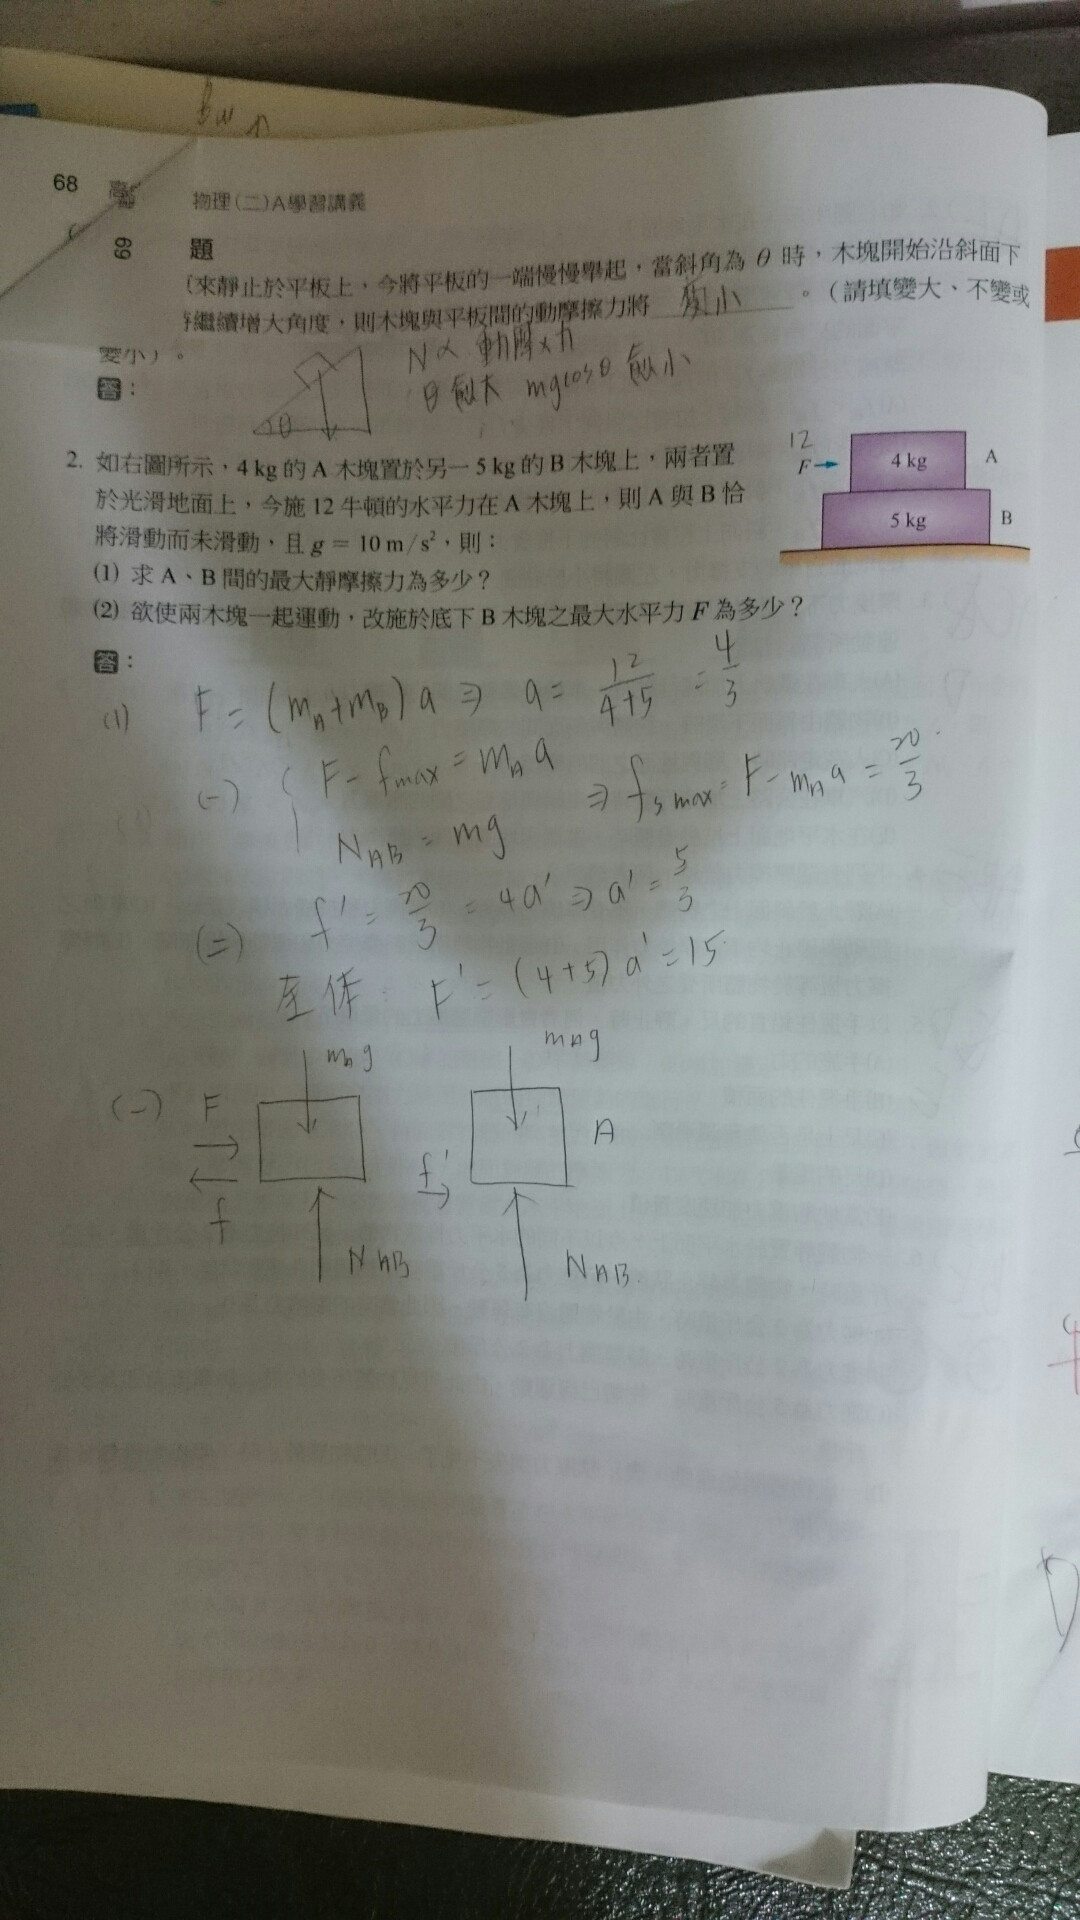 68
物理(二)A學習講義
69 題
來靜止於平板上，今將平板的一端慢慢舉起，當斜角為 θ 時，木塊開始沿斜面下
繼續增大角度，則木塊與平板間的動摩擦力將 變小 。（請填變大、不變或
變小）。
答：
N∝ 動摩擦力
θ 愈大 mgcosθ 愈小
θ
2. 如右圖所示，4 kg 的 A 木塊置於另一 5 kg 的 B 木塊上，兩者置
於光滑地面上，今施 12 牛頓的水平力在 A 木塊上，則 A 與 B 恰
將滑動而未滑動，且 g = 10 m/s²，則：
(1) 求 A、B 間的最大靜摩擦力為多少？
(2) 欲使兩木塊一起運動，改施於底下 B 木塊之最大水平力 F 為多少？
12
F→
4 kg
A
5 kg
B
答：
(1) F = (mA+mB)a ⇒ a = 12/(4+5) = 4/3
(一) { F - fmax = mAa
NAB = mg
⇒ fsmax = F - mAa = 20/3
(二) f' = 20/3 = 4a' ⇒ a' = 5/3
F' = (4+5)a' = 15
(一) F
f
NAB
mAg
f'
A
NAB